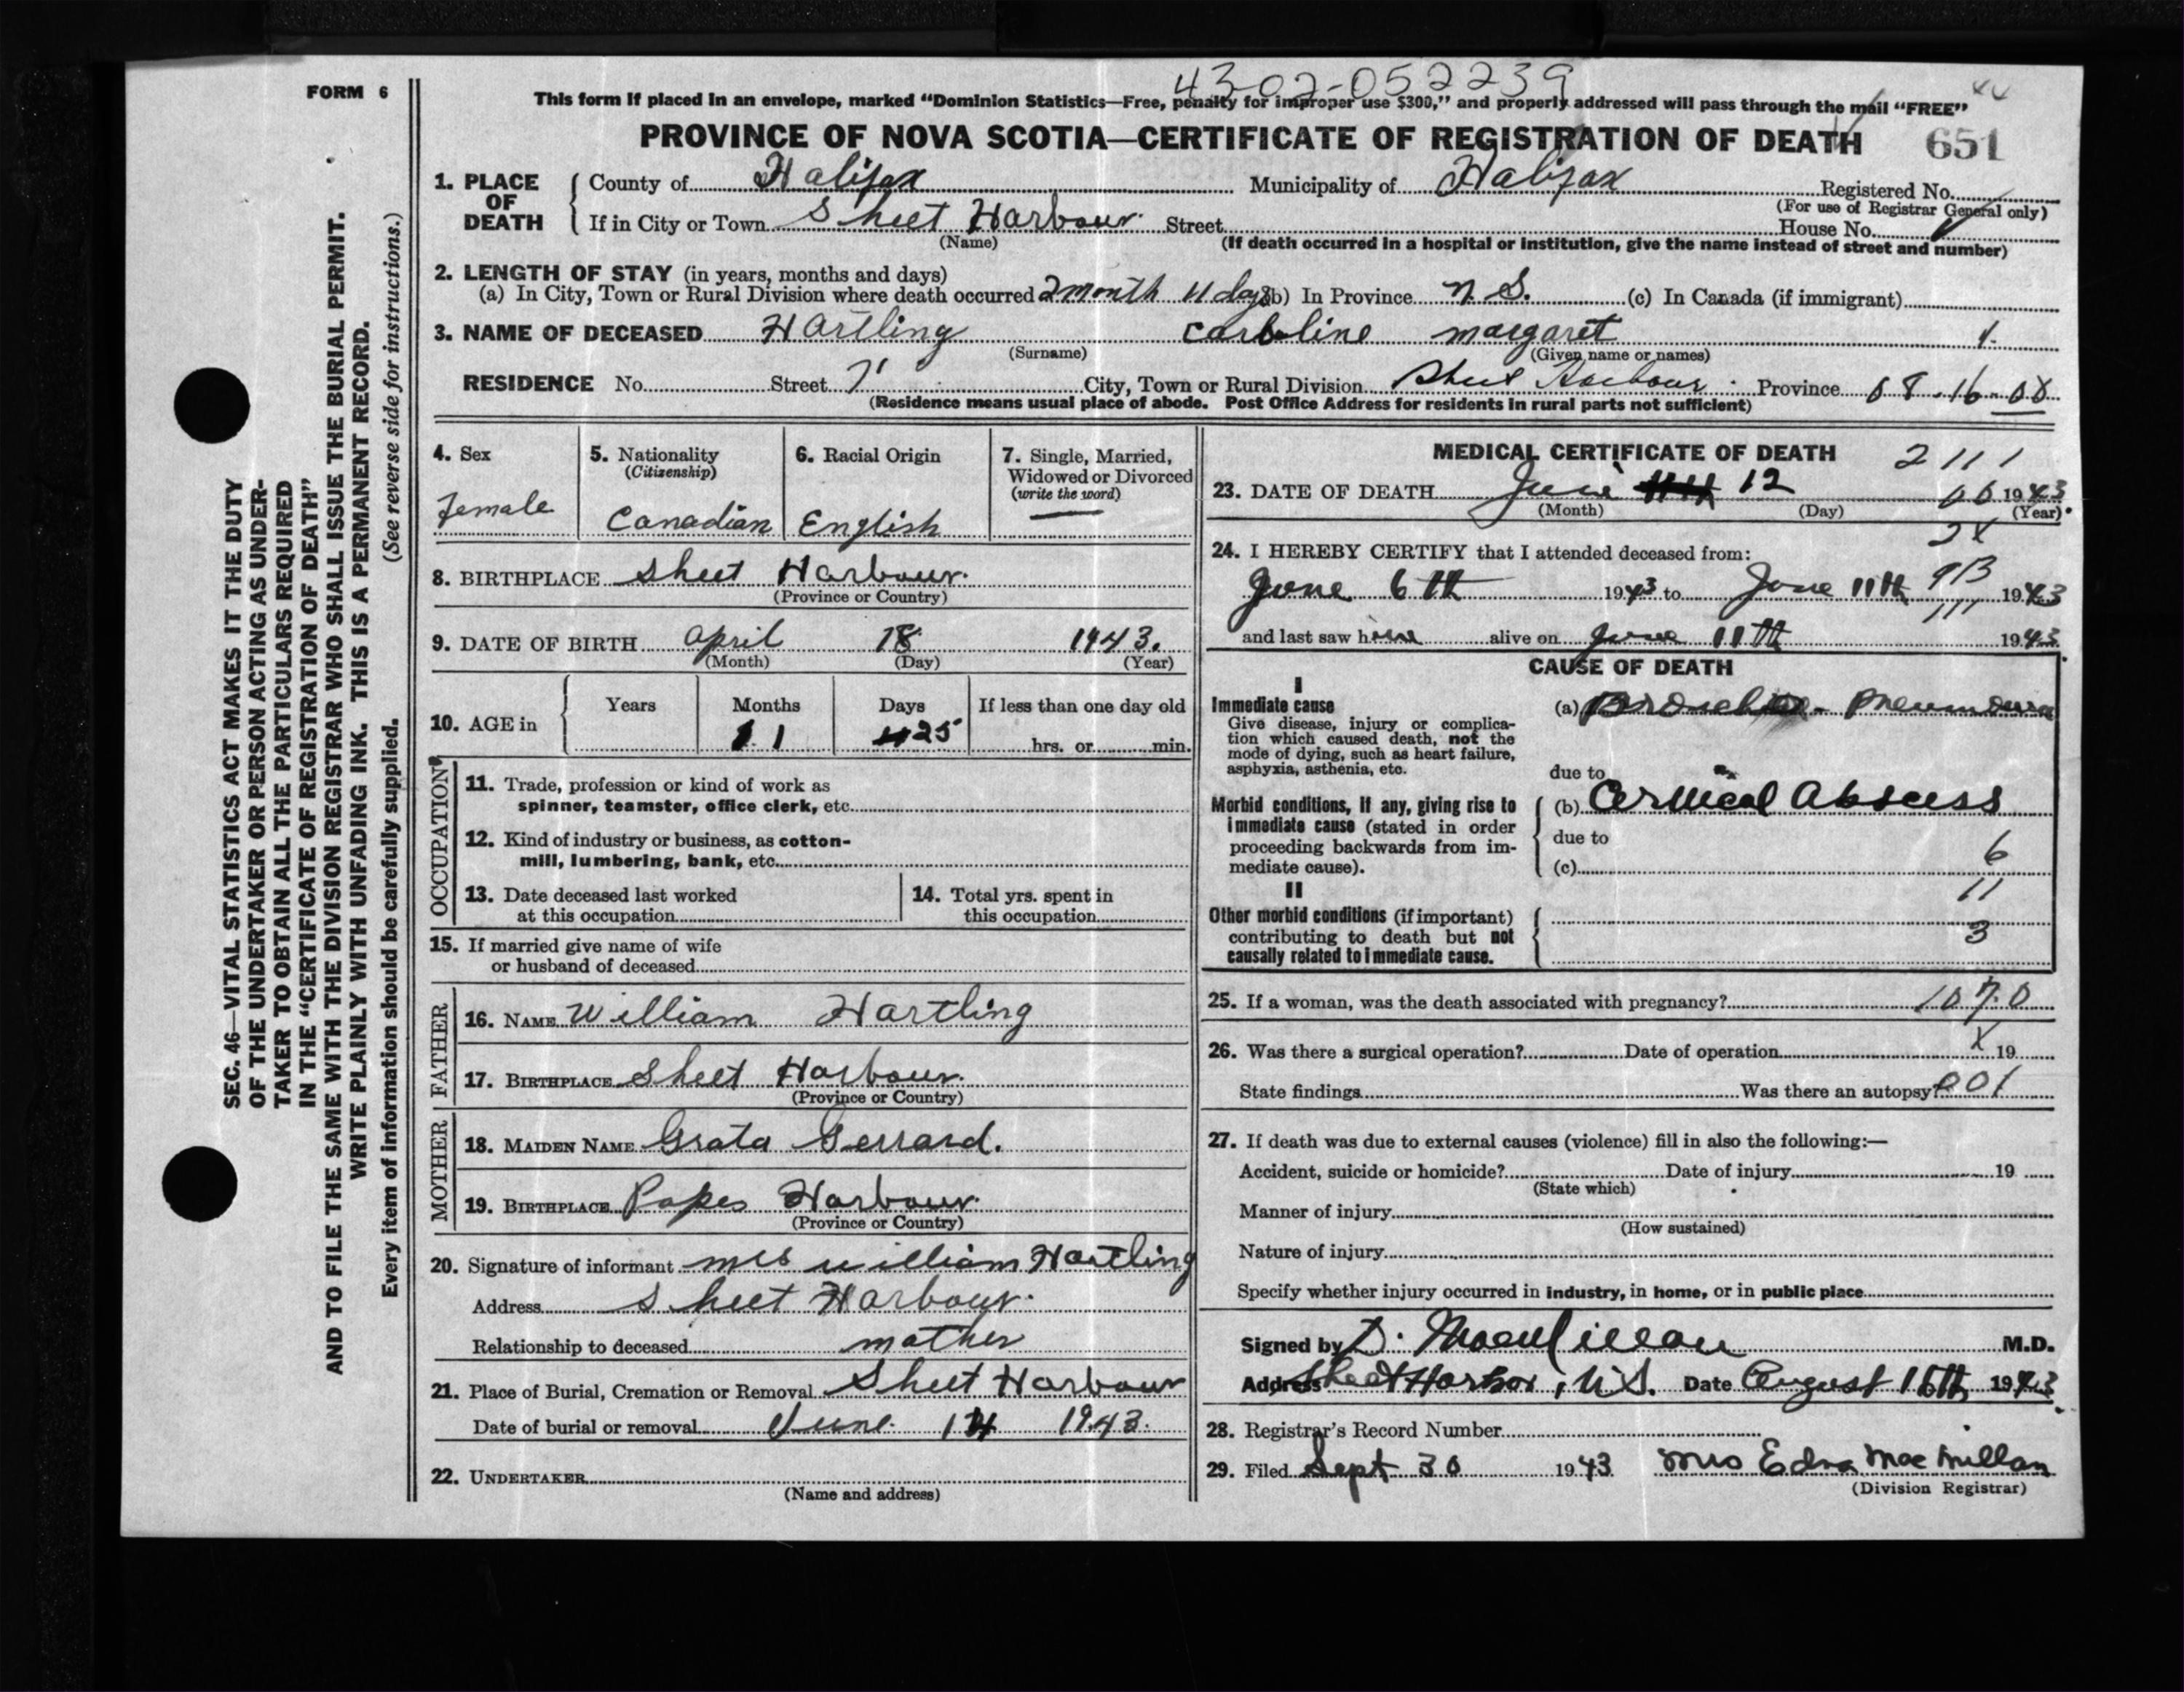 4302-052239
FORM 6
This form if placed in an envelope, marked “Dominion Statistics—Free, penalty for improper use $300,” and properly addressed will pass through the mail “FREE”
PROVINCE OF NOVA SCOTIA—CERTIFICATE OF REGISTRATION OF DEATH 651
1. PLACE OF DEATH
County of Halifax Municipality of Halifax Registered No.
(For use of Registrar General only)
If in City or Town Sheet Harbour. Street House No.
(Name) (If death occurred in a hospital or institution, give the name instead of street and number)
2. LENGTH OF STAY (in years, months and days)
(a) In City, Town or Rural Division where death occurred 2 month 11 days (b) In Province N.S. (c) In Canada (if immigrant)
3. NAME OF DECEASED Hartling Caroline margaret
(Surname) (Given name or names)
RESIDENCE No. Street City, Town or Rural Division Sheet Harbour Province 08.16.08
(Residence means usual place of abode. Post Office Address for residents in rural parts not sufficient)
4. Sex
female
5. Nationality
(Citizenship)
Canadian
6. Racial Origin
English
7. Single, Married,
Widowed or Divorced
(write the word)
—
8. BIRTHPLACE Sheet Harbour.
(Province or Country)
9. DATE OF BIRTH April 18 1943.
(Month) (Day) (Year)
10. AGE in Years Months Days If less than one day old
1 25 hrs. or min.
OCCUPATION
11. Trade, profession or kind of work as
spinner, teamster, office clerk, etc.
12. Kind of industry or business, as cotton-
mill, lumbering, bank, etc.
13. Date deceased last worked
at this occupation
14. Total yrs. spent in
this occupation
15. If married give name of wife
or husband of deceased
FATHER
16. NAME William Hartling
17. BIRTHPLACE Sheet Harbour.
(Province or Country)
MOTHER
18. MAIDEN NAME Grata Gerrard.
19. BIRTHPLACE Popes Harbour.
(Province or Country)
20. Signature of informant mrs william Hartling
Address Sheet Harbour.
Relationship to deceased mother
21. Place of Burial, Cremation or Removal Sheet Harbour
Date of burial or removal June 14 1943.
22. UNDERTAKER
(Name and address)
MEDICAL CERTIFICATE OF DEATH 2111
23. DATE OF DEATH June 12 06 1943
(Month) (Day) (Year)
2X
24. I HEREBY CERTIFY that I attended deceased from:
June 6th 1943 to June 11th 1943
913
111
and last saw her alive on June 11th 1943.
CAUSE OF DEATH
I
Immediate cause
Give disease, injury or complica-
tion which caused death, not the
mode of dying, such as heart failure,
asphyxia, asthenia, etc.
(a) Broncho - Pneumonia
due to
Morbid conditions, if any, giving rise to
immediate cause (stated in order
proceeding backwards from im-
mediate cause).
(b) Cervical Abscess
due to
6
(c)
11
II
Other morbid conditions (if important)
contributing to death but not
causally related to immediate cause.
3
25. If a woman, was the death associated with pregnancy? 107.0
26. Was there a surgical operation? Date of operation X 19
State findings Was there an autopsy? 001
27. If death was due to external causes (violence) fill in also the following:—
Accident, suicide or homicide? Date of injury 19
(State which)
Manner of injury
(How sustained)
Nature of injury
Specify whether injury occurred in industry, in home, or in public place
Signed by D. MacMillan M.D.
Address Sheet Harbor, N.S. Date August 16th 1943.
28. Registrar's Record Number
29. Filed Sept 30 1943 Mrs Edna MacMillan
(Division Registrar)
SEC. 46—VITAL STATISTICS ACT MAKES IT THE DUTY
OF THE UNDERTAKER OR PERSON ACTING AS UNDER-
TAKER TO OBTAIN ALL THE PARTICULARS REQUIRED
IN THE “CERTIFICATE OF REGISTRATION OF DEATH”
AND TO FILE THE SAME WITH THE DIVISION REGISTRAR WHO SHALL ISSUE THE BURIAL PERMIT.
WRITE PLAINLY WITH UNFADING INK. THIS IS A PERMANENT RECORD.
Every item of information should be carefully supplied. (See reverse side for instructions.)